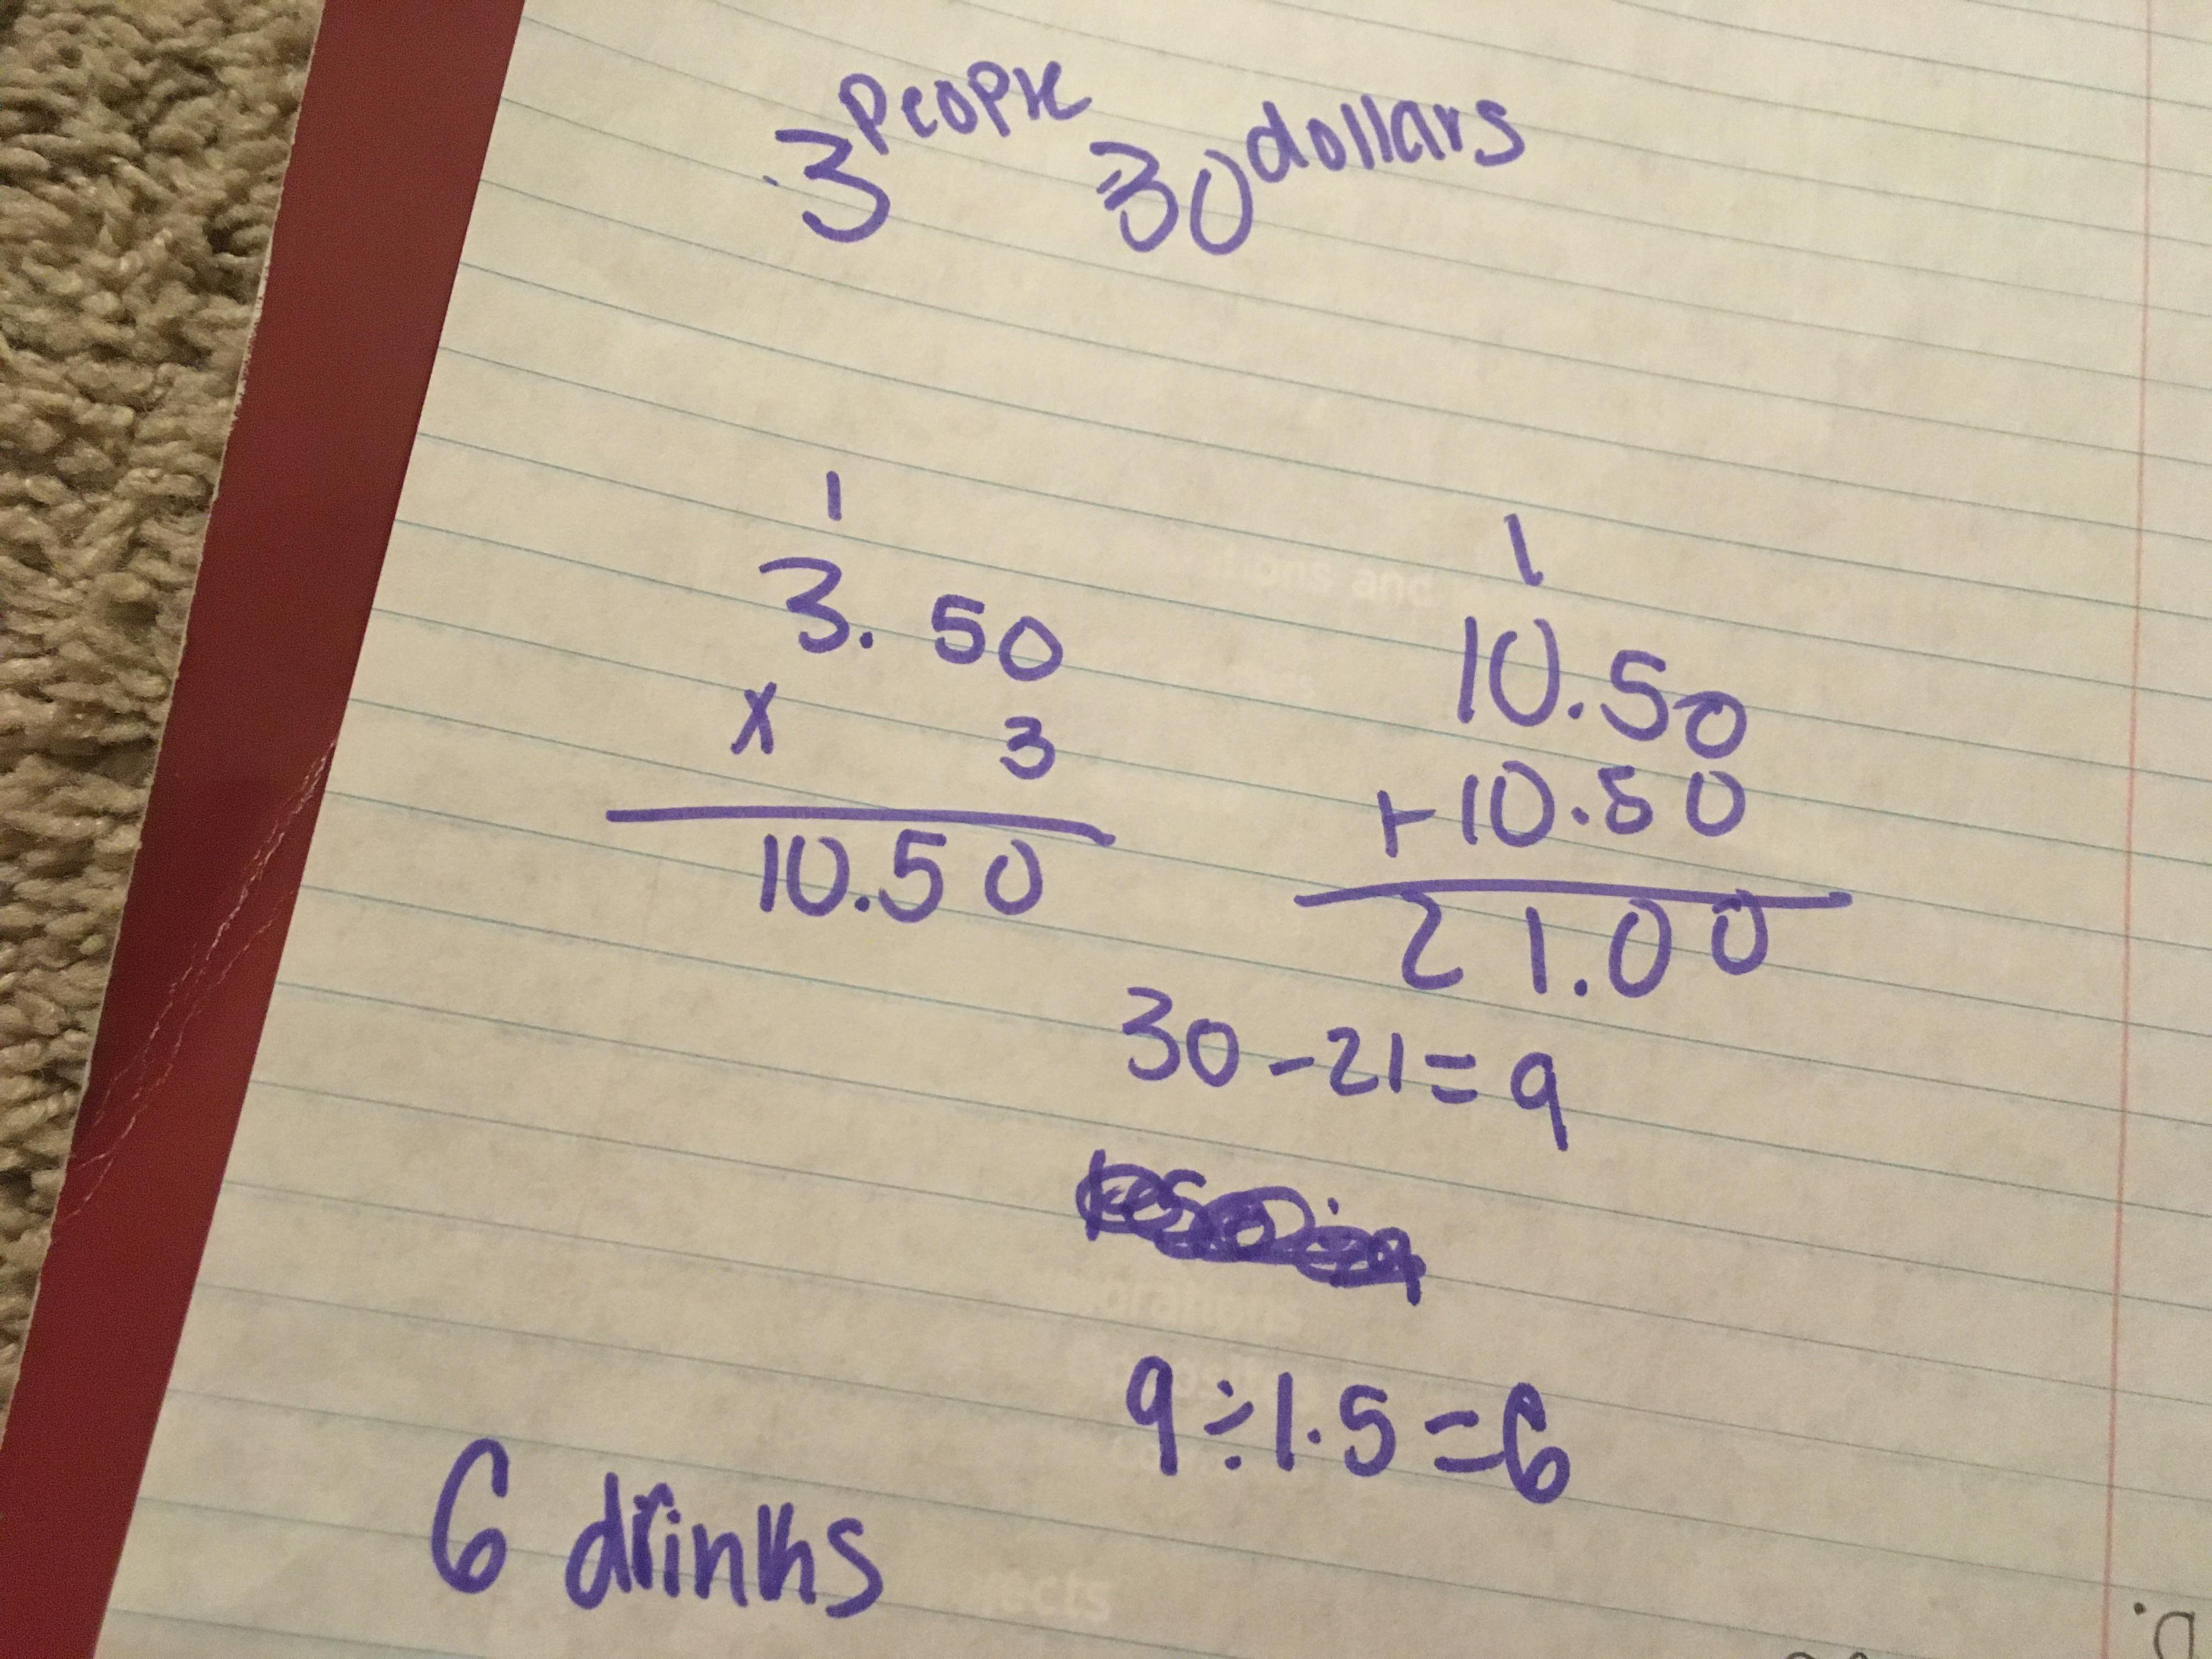 3 people 30 dollars
1
3.50
x 3
10.50
1
10.50
+10.50
21.00
30-21=9
9÷1.5=6
6 drinks